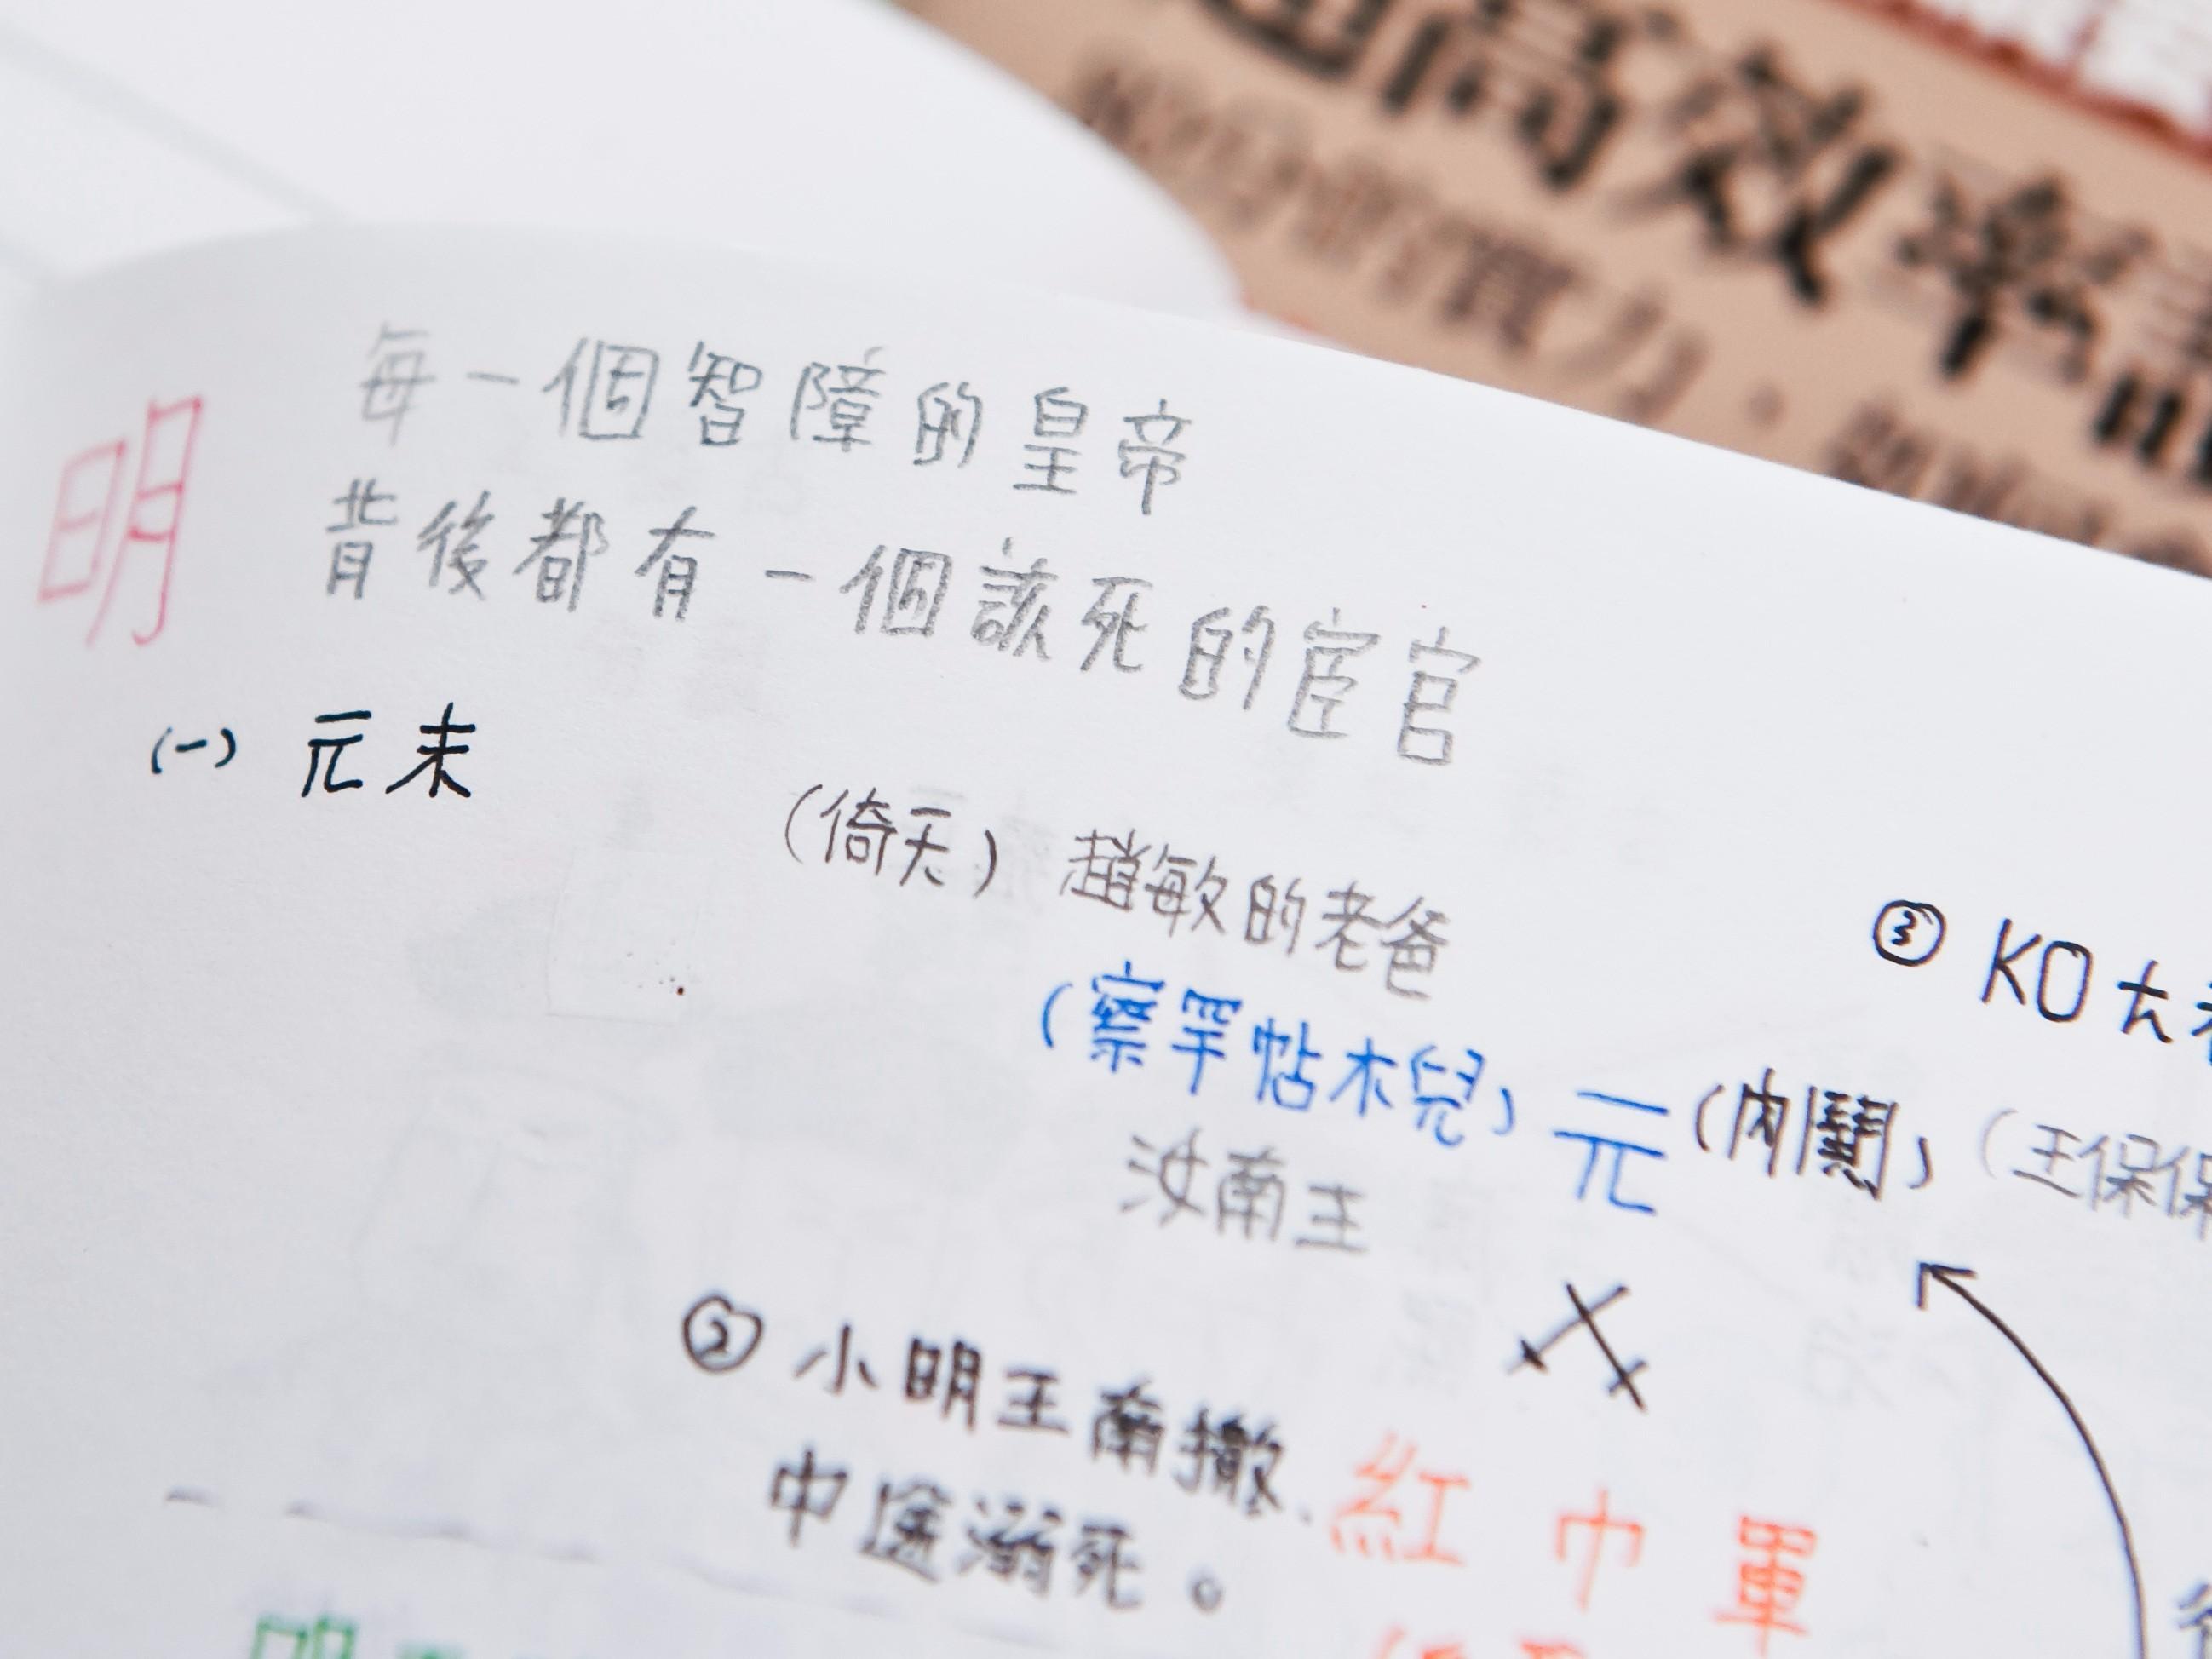 高效率
實力，
明
每一個智障的皇帝
背後都有一個該死的宦官
(一) 元末
(倚天) 趙敏的老爸
③ KO 大
(察罕帖木兒) 元 (內鬨) (王保保
汝南王
② 小明王南撤、
中途溺死。
紅巾軍
明